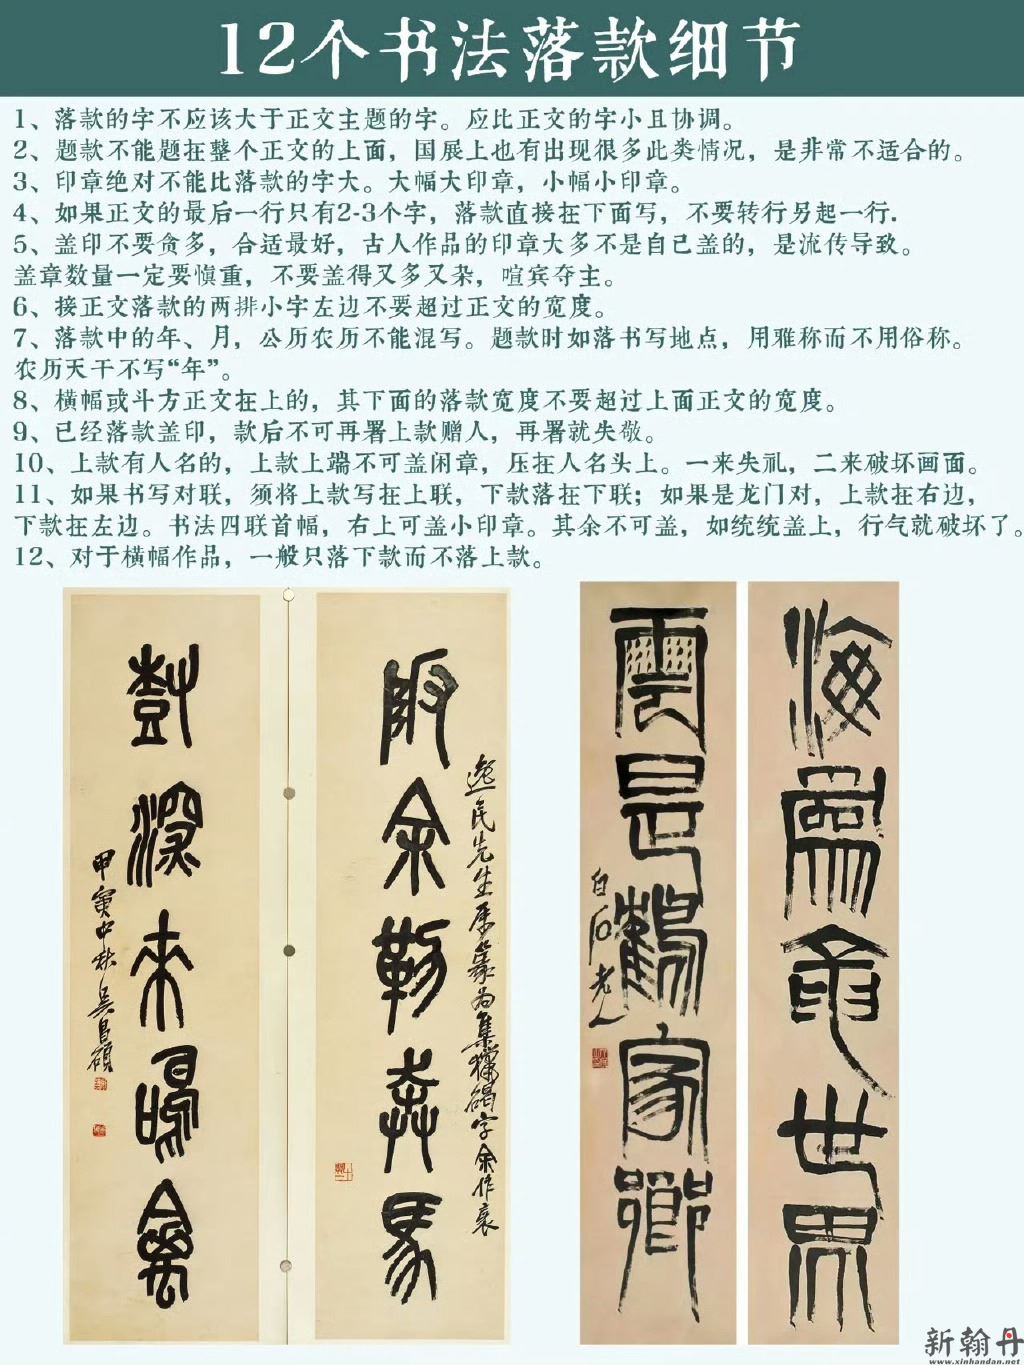 12个书法落款细节
1、落款的字不应该大于正文主题的字。应比正文的字小且协调。
2、题款不能题在整个正文的上面，国展上也有出现很多此类情况，是非常不适合的。
3、印章绝对不能比落款的字大。大幅大印章，小幅小印章。
4、如果正文的最后一行只有2-3个字，落款直接在下面写，不要转行另起一行.
5、盖印不要贪多，合适最好，古人作品的印章大多不是自己盖的，是流传导致。
盖章数量一定要慎重，不要盖得又多又杂，喧宾夺主。
6、接正文落款的两排小字左边不要超过正文的宽度。
7、落款中的年、月，公历农历不能混写。题款时如落书写地点，用雅称而不用俗称。
农历天干不写“年”。
8、横幅或斗方正文在上的，其下面的落款宽度不要超过上面正文的宽度。
9、已经落款盖印，款后不可再署上款赠人，再署就失敬。
10、上款有人名的，上款上端不可盖闲章，压在人名头上。一来失礼，二来破坏画面。
11、如果书写对联，须将上款写在上联，下款落在下联；如果是龙门对，上款在右边，
下款在左边。书法四联首幅，右上可盖小印章。其余不可盖，如统统盖上，行气就破坏了。
12、对于横幅作品，一般只落下款而不落上款。
海为龙世界
雲是鶴家鄉
白石老人
逸民先生属篆为集猎碣字
甲寅中秋吴昌碩
新翰丹
www.xinhandan.net